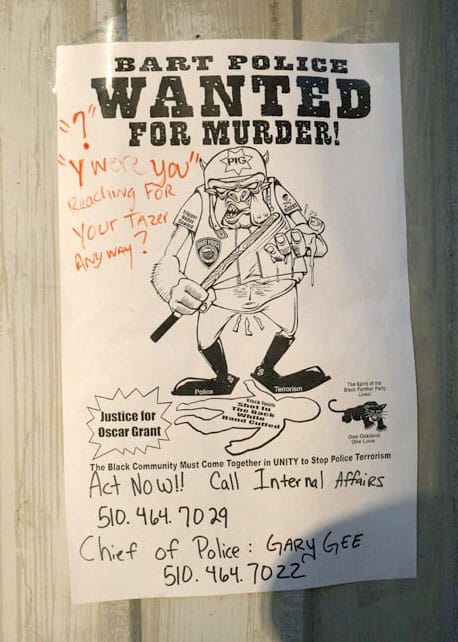 BART POLICE
WANTED
FOR MURDER!
"?"
"Y were you"
Reaching FOR
Your Tazer
ANYWAY?
PIG
Police
Terrorism
Black Youth
Shot In
The Back
While
Hand Cuffed
Justice for
Oscar Grant
The Spirit of the
Black Panther Party
Lives!
One Oakland
One Love.
The Black Community Must Come Together in UNITY to Stop Police Terrorism
Act Now!! Call Internal Affairs
510.464.7029
Chief of Police: GARY GEE
510.464.7022